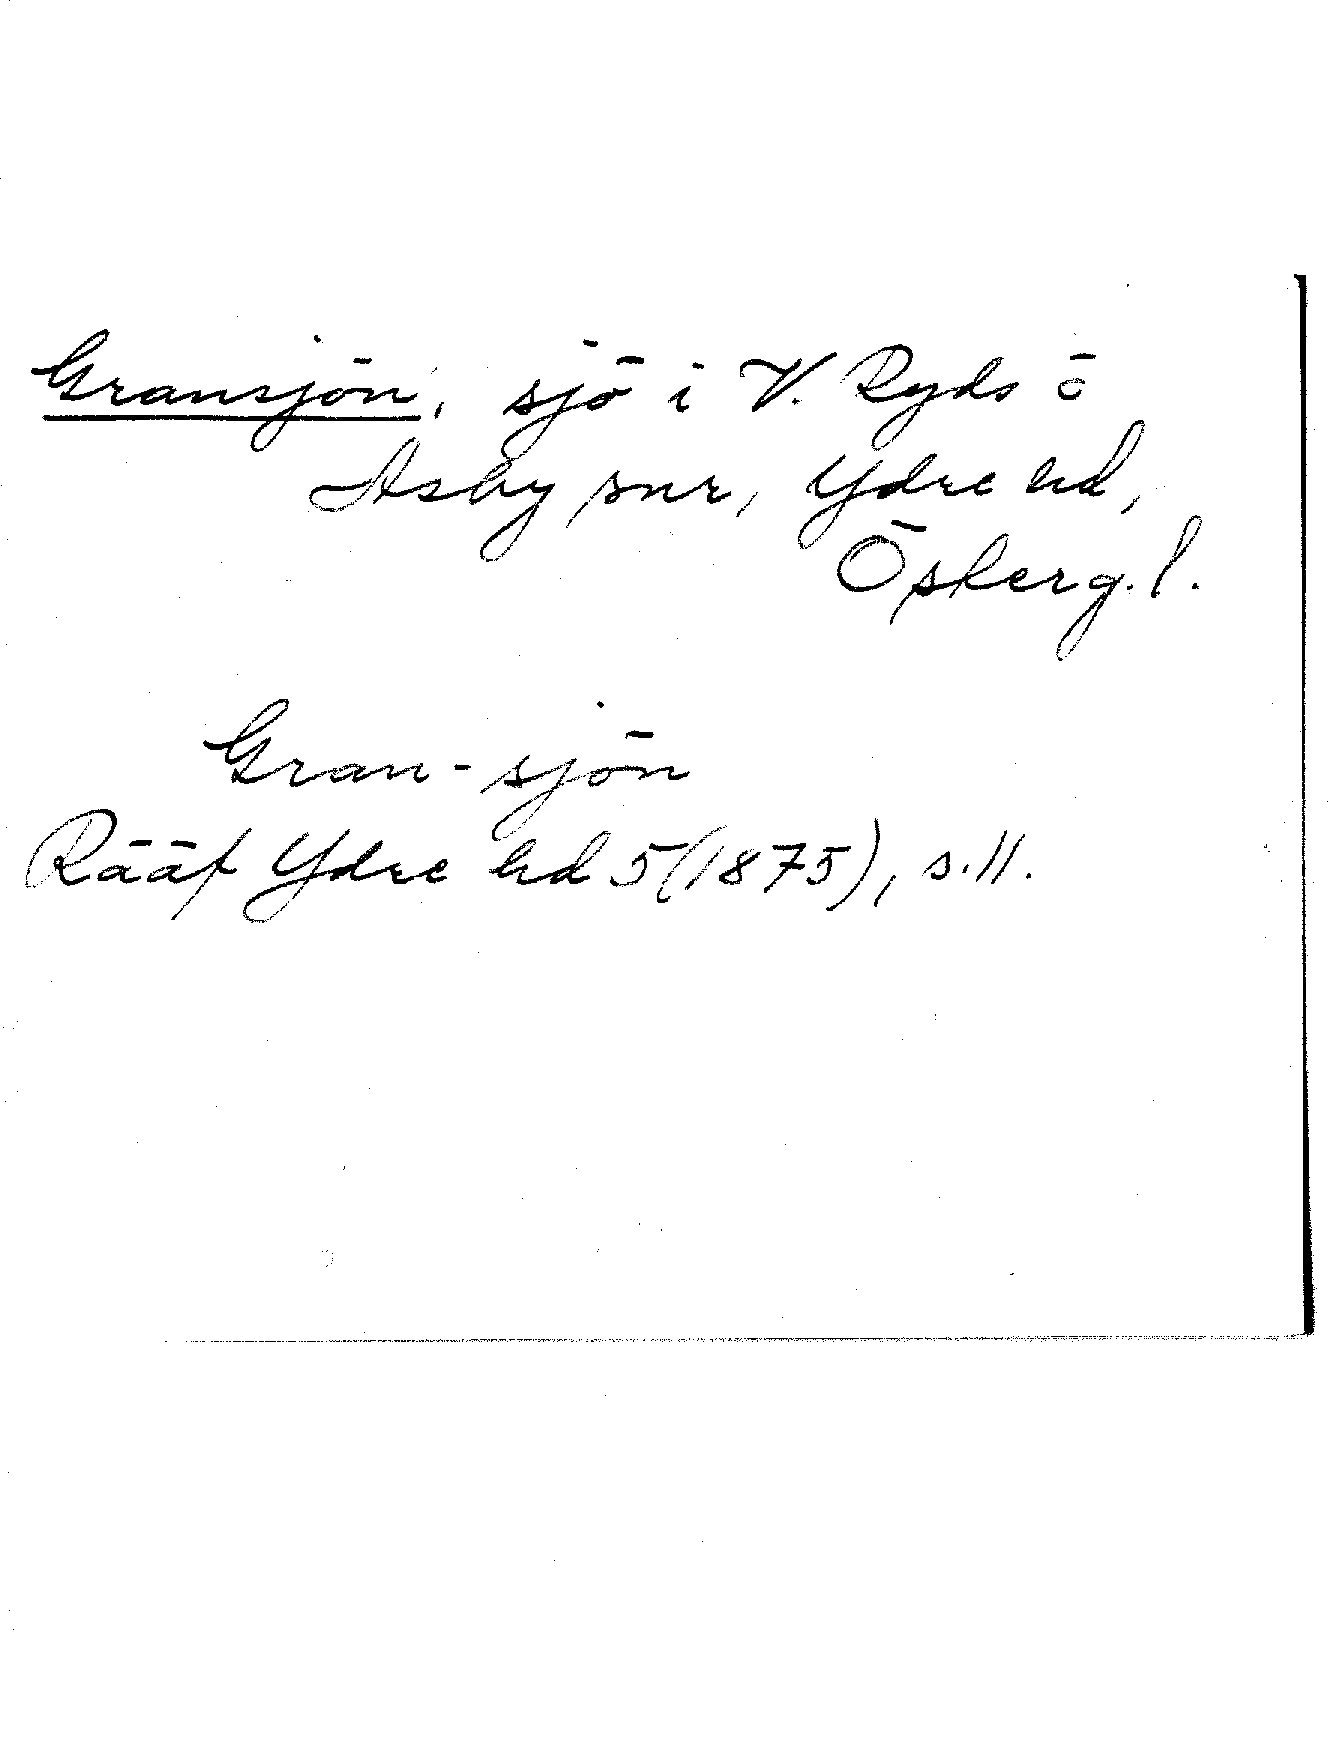 Gransjön, sjö i V. Ryds o
Asby snr, Ydre hd,
Östergl.
Gran-sjön
Rääf Ydre hd 5(1875), s.11.